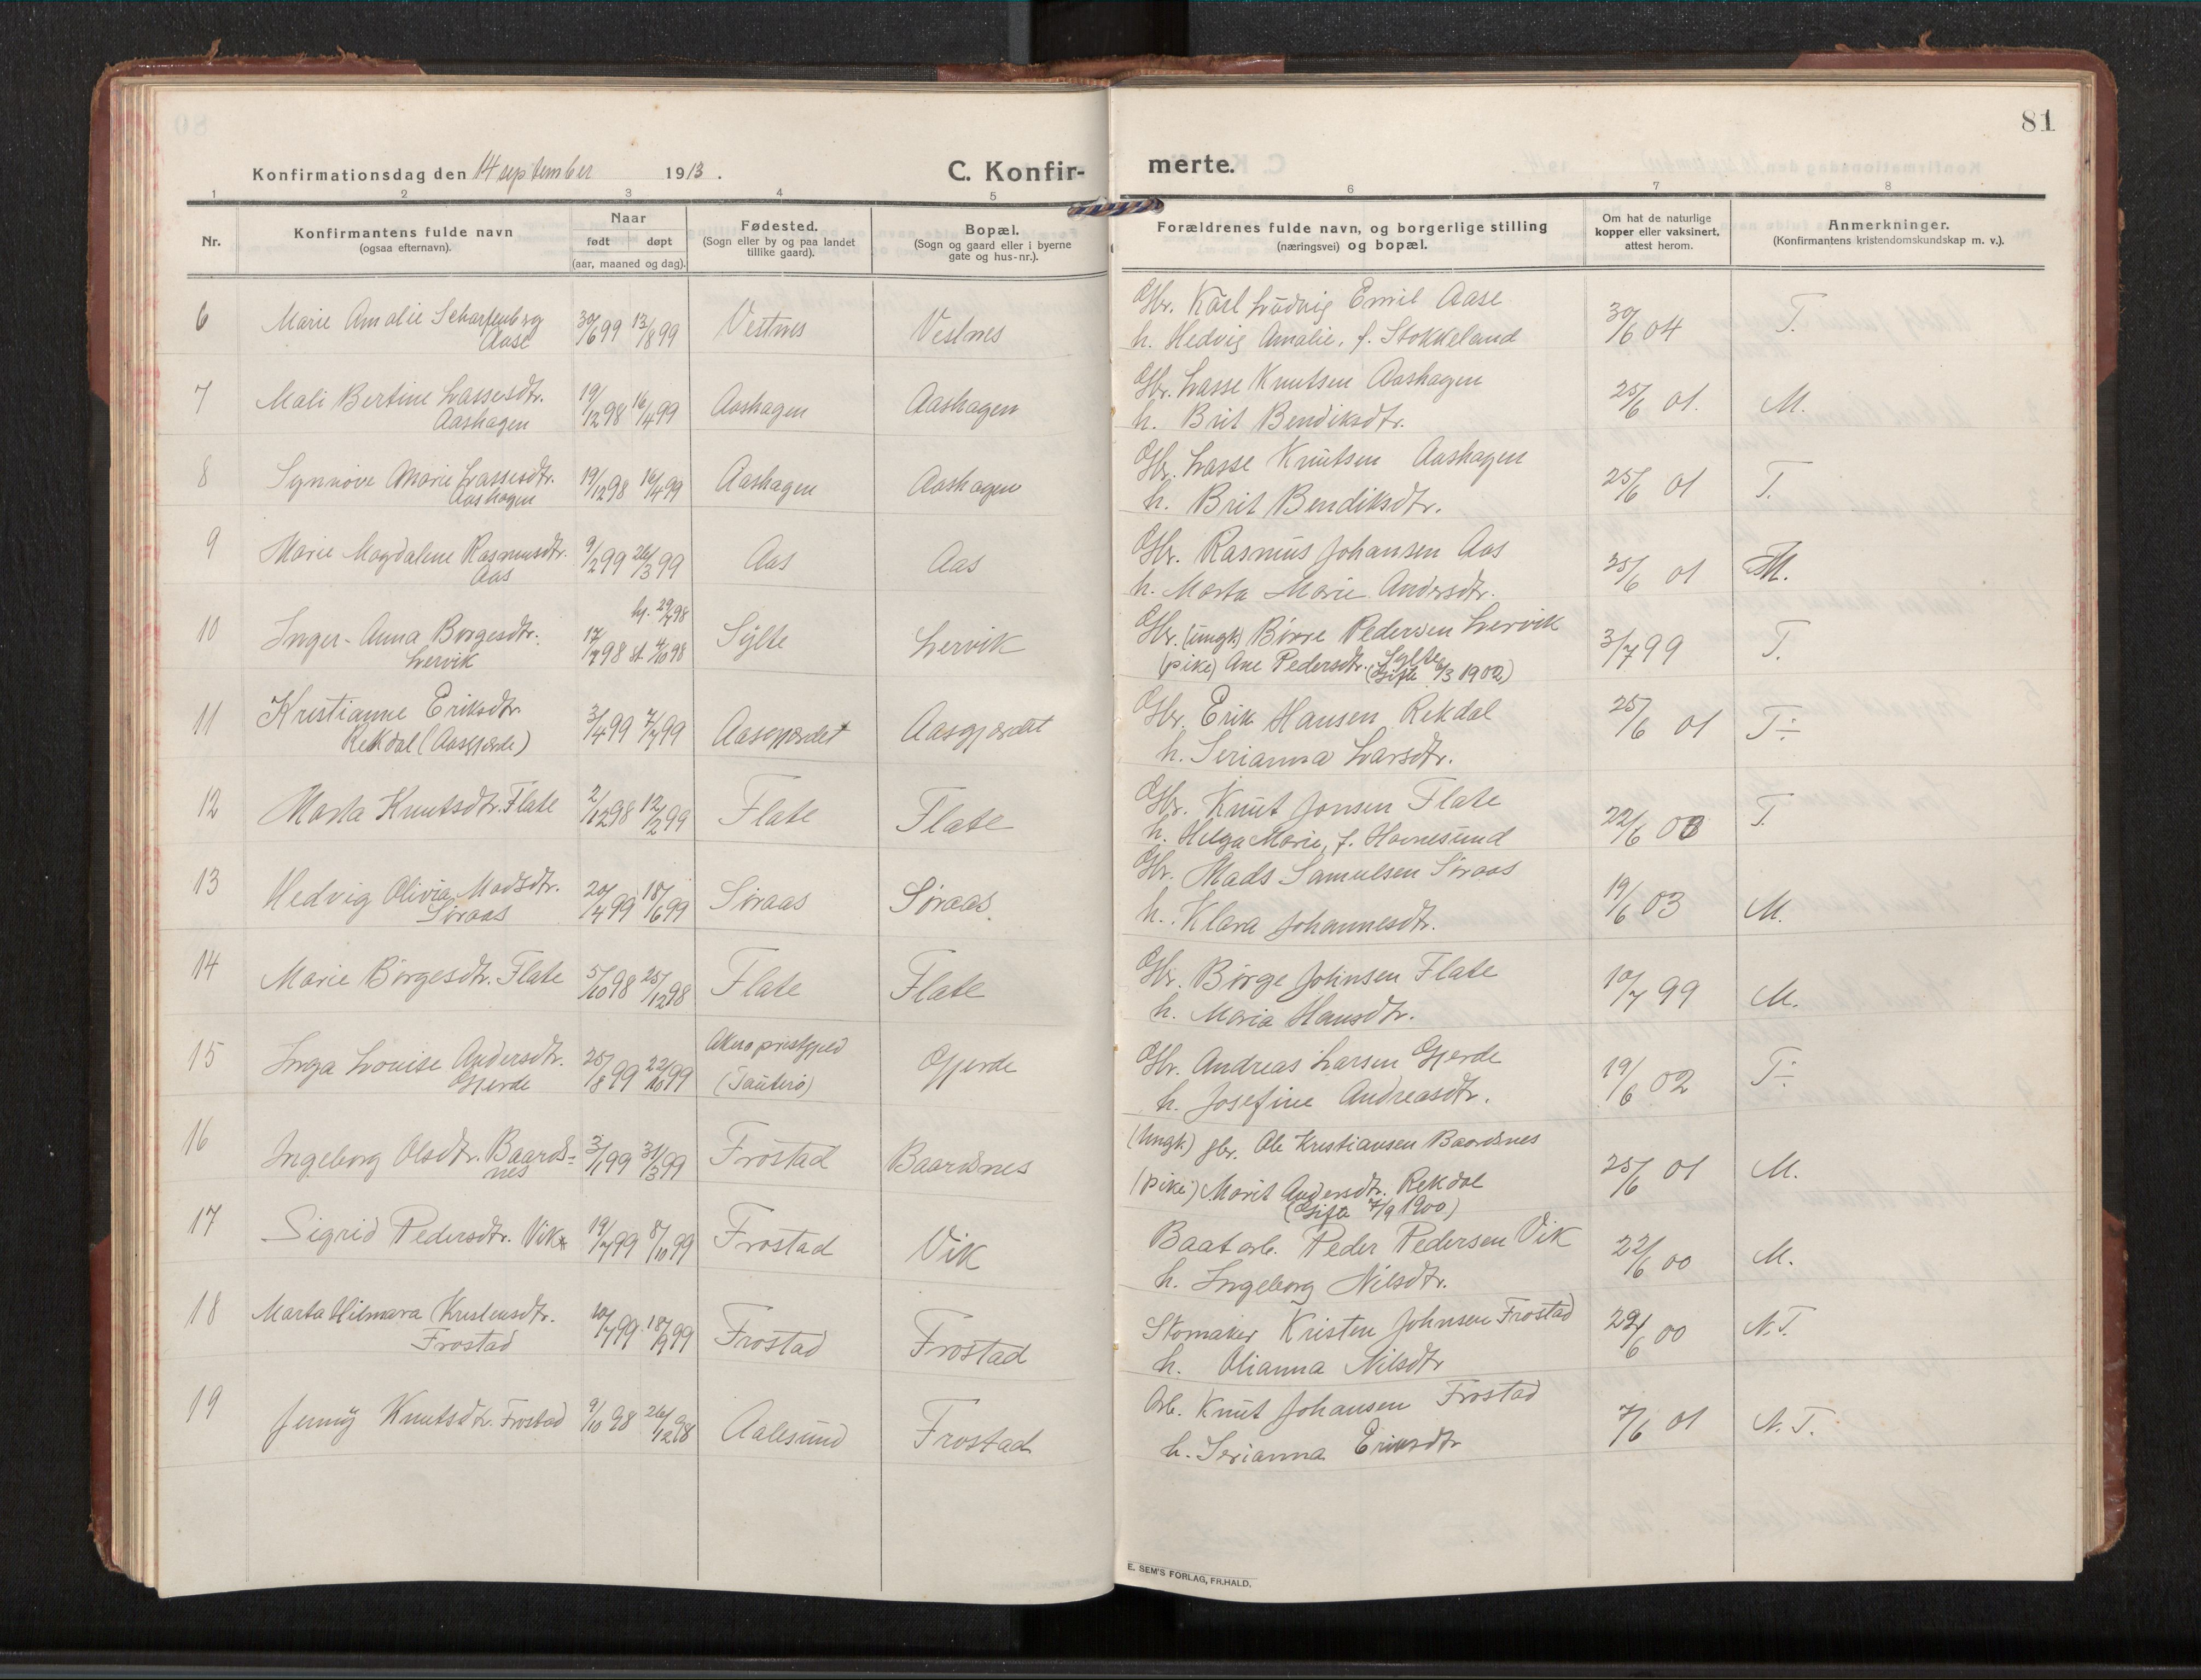 81
Konfirmationsdag den 14 september 1913.
C. Konfir-
merte.
1 2 3 4 5 6 7 8
Nr.
Konfirmantens fulde navn
(ogsaa efternavn).
Naar
født døpt
(aar, maaned og dag).
Fødested.
(Sogn eller by og paa landet
tillike gaard).
Bopæl.
(Sogn og gaard eller i byerne
gate og hus-nr.).
Forældrenes fulde navn, og borgerlige stilling
(næringsvei) og bopæl.
Om hat de naturlige
kopper eller vaksinert,
attest herom.
Anmerkninger.
(Konfirmantens kristendomskundskap m. v.).
6 Marie Amalie Scharfenberg
Aase
30/6 99 13/8 99 Vestnes Vestnes
Gbr. Karl Ludvig Emil Aase
h. Hedvig Amalie, f. Stokkeland
30/6 04 T.
7 Mali Bertine Lassesdtr.
Aashagen
19/12 98 16/4 99 Aashagen Aashagen
Gbr. Lasse Knutsen Aashagen
h. Brit Bendiksdtr.
25/6 01. M.
8 Synnøve Marie Lassesdtr.
Aashagen
19/12 98 16/4 99 Aashagen Aashagen
Gbr. Lasse Knutsen Aashagen
h. Brit Bendiksdtr.
25/6 01 T.
9 Marie Magdalene Rasmusdtr.
Aas
9/2 99 26/3 99 Aas Aas
Gbr. Rasmus Johansen Aas
h. Marta Marie Andersdtr.
25/6 01 M.
10 Inger-Anna Børgesdtr.
Lervik
17/7 98 hj. 29/7 98
st. 4/10 98 Sylte Lervik
Gbr. (ungk) Børre Pedersen Lervik
(pike) Ane Pedersdtr. Sylte
(Gifte /3 1900)
3/7 99 T.
11 Kristianne Eriksdtr.
Rekdal (Aasgjærde)
3/4 99 7/7 99 Aasgjærdet Aasgjærdet
Gbr. Erik Hansen Rekdal
h. Serianna Larsdtr.
25/6 01 T÷
12 Marta Knutsdtr. Flate 2/12 98 12/2 99 Flate Flate
Gbr. Knut Jonsen Flate
h. Helga Marie, f. Havnesund
22/6 00 T.
13 Hedvig Olivia Madsdtr.
Søraas
20/4 99 18/6 99 Søraas Søraas.
Gbr. Mads Samuelsen Søraas
h. Klara Johannesdtr.
19/6 03 M.
14 Marie Børgesdtr. Flate 5/10 98 25/12 98 Flate Flate
Gbr. Børge Johnsen Flate
h. Maria Hansdtr.
10/7 99 M.
15 Inga Lovise Andersdtr.
Gjerde
25/8 99 22/10 99 Akerø prestgjeld
(Tauterø) Gjerde
Gbr. Andreas Larsen Gjerde
h. Josefine Andreasdtr.
19/6 02 T÷
16 Ingeborg Olsdtr. Baards=
nes
3/1 99 31/3 99 Frostad Baardsnes
(Ungk) gbr. Ole Kristiansen Baardsnes
(pike) Marit Andersdtr. Rekdal
(Gifte 7/9 1900)
25/6 01 M.
17 Sigrid Pedersdtr. Vik 19/7 99 8/10 99 Frostad Vik
Baatarb. Peder Pedersen Vik
h. Ingeborg Nilsdtr.
22/6 00 M.
18 Marta Hilmara Kristensdtr.
Frostad
10/7 99 18/9 99 Frostad Frostad
Skomaker Kristen Johnsen Frostad
h. Olianna Nilsdtr
22/6 00 N.T.
19 Jenny Knutsdtr. Frostad 9/10 98 26/12 98 Aalesund Frostad
Arb. Knut Johansen Frostad
h. Serianna Eriksdtr
7/6 01 N.T.
E. SEM'S FORLAG, FR.HALD.